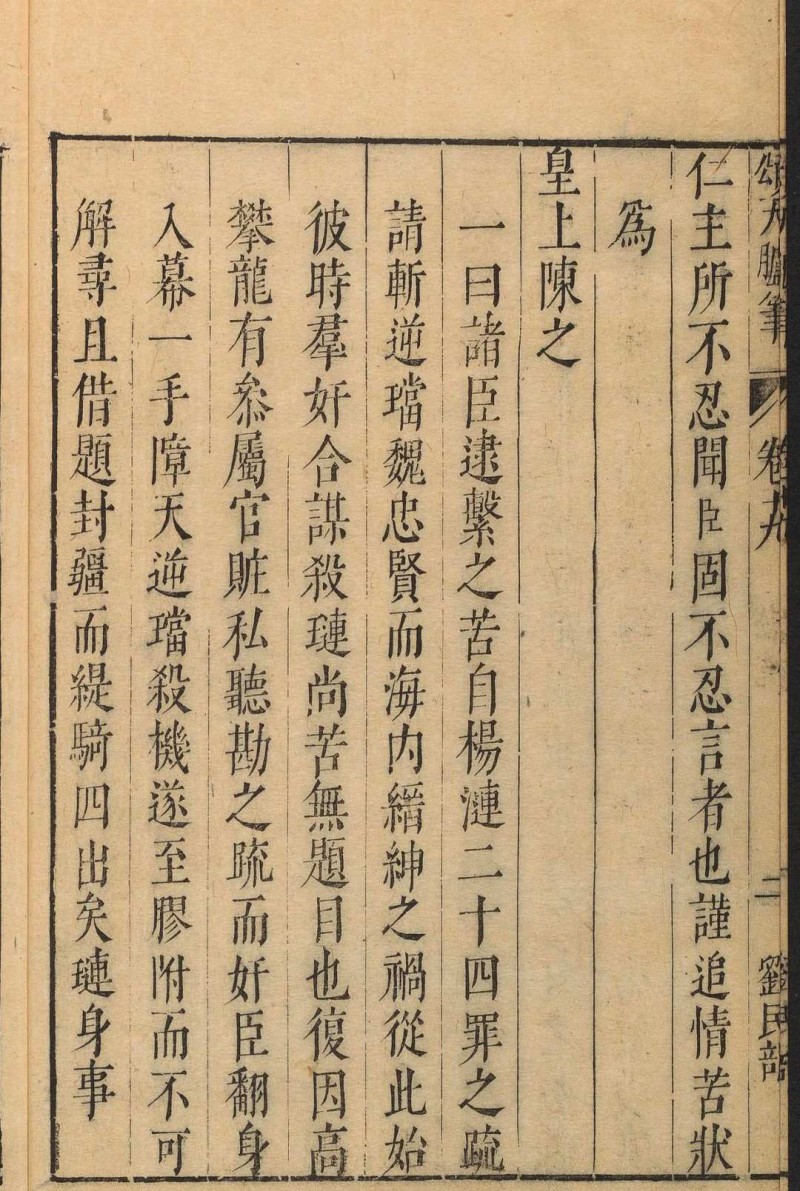 頌天臚筆 卷十九 二 劉民部
仁主所不忍聞臣固不忍言者也謹追情苦狀
爲
皇上陳之
一曰諸臣逮繫之苦自楊漣二十四罪之疏
請斬逆璫魏忠賢而海内縉紳之禍從此始
彼時羣奸合謀殺璉尚苦無題目也復因高
攀龍有叅屬官賍私聽勘之疏而奸臣翻身
入幕一手障天逆璫殺機遂至膠附而不可
解尋且借題封疆而緹騎四出矣璉身事